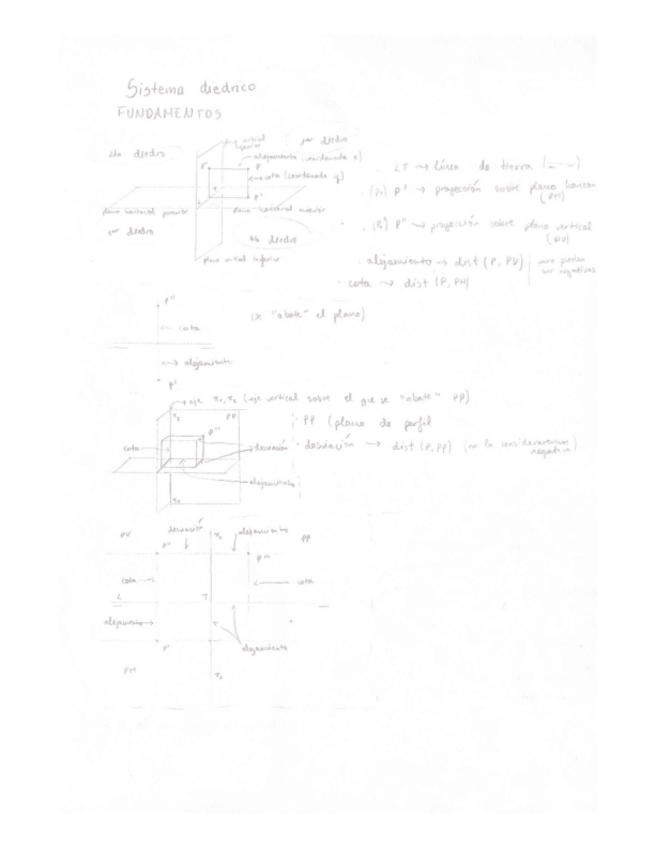 Sistema diédrico
FUNDAMENTOS
2do diedro
vertical superior
1er diedro
alejamiento (coordenada x)
P''
P
cota (coordenada y)
P'
plano horizontal posterior
plano horizontal anterior
3er diedro
4to diedro
plano vertical inferior
· LT → Línea de tierra
· (P₁) P' → proyección sobre plano horizon (PH)
· P'' → proyección sobre plano vertical (PV)
· alejamiento → dist (P, PV)
· cota → dist (P, PH)
ser negativas
P''
cota
alejamiento
P'
(se "abate" el plano)
eje π₁, π₂ (eje vertical sobre el que se "abate" PP)
π₂
PP
P''
cota
desviación
alejamiento
· PP (plano de perfil
· desviación → dist (P, PP) (no la consideraremos negativa)
PV
desviación
π₂
alejamiento
PP
P''
P'''
cota
cota
L
T
alejamiento
T
P'
alejamiento
PH
π₂